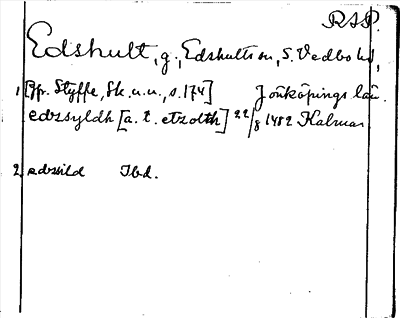 RSP.
Edshult, g., Edshults sn, S. Vedbo hd,
1, [Jfr. Styffe, Sk. u. u., s. 174] Jönköpings län.
edzsyldh [a. t. etzolth] 22/8 1482 Kalmar
2, edzsild Ibd.